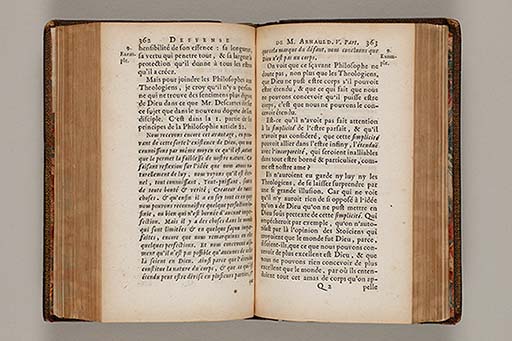 362 DEFFENSE
9.
Exem-
ple.
hensibilité de son essence : sa longueur,
sa vertu qui penetre tout, & sa largeur la
protection qu'il donne à tous les estres
qu'il a créez.
Mais pour joindre les Philosophes aux
Theologiens, je croy qu'il n'y a person-
ne qui ne trouve des sentimens plus dignes
de Dieu dans ce que Mr. Descartes dit sur
ce sujet que dans le nouveau dogme de son
disciple. C'est dans la 1. partie de ses
principes de la Philosophie article 22.
Nous recevons encore cet avantage, en prou-
vant de cette sorte l'existence de Dieu, que nous
connoissons par même moyen ce qu'il est autant
que le permet la foiblesse de nostre nature. Car
faisant reflexion sur l'idée que nous avons na-
turellement de luy, nous voyons qu'il est éter-
nel, tout connoissant, Tout-puissant, source
de toute bonté & verité, Createur de toutes
choses, & qu'enfin il a en soy tout ce en quoy
nous pouvons reconnoistre quelque perfection in-
finie, ou bien qui n'est bornée d'aucune imper-
fection. Mais il y a des choses dans le monde
qui sont limitées & en quelque façon impar-
faites, encore que nous remarquions en elles
quelques perfections. Et nous concevons aise-
ment qu'il n'est pas possible qu'aucunes de celles
là soient en Dieu. Ainsi parce que l'étendue
constitue la nature du corps, & que ce qui est
étendu peut estre divisé en plusieurs parties, &
que
DE M. ARNAULD. V. PART. 363
9.
Exem-
ple.
que cela marque du défaut, nous concluons que
Dieu n'est pas un corps.
On voit que ce sçavant Philosophe ne
doute pas, non plus que les Theologiens,
que Dieu ne pust estre corps s'il pouvoit
estre étendu, & que ce qui fait que nous
ne pouvons concevoir qu'il puisse estre
corps, c'est que nous ne pouvons le con-
cevoir étendu.
Est-ce qu'il n'avoit pas fait attention
à la simplicité de l'estre parfait, & qu'il
n'avoit pas consideré, que cette simplicité
pouvoit allier dans l'estre infiny, l'étenduë
avec l'incorporéité, qui seroient inalliables
dans tout estre borné & particulier, com-
me est nostre ame?
Ils n'auroient eu garde ny luy ny les
Theologiens, de se laisser surprendre par
une si grande illusion. Car qui ne voit
qu'il n'y auroit rien de si opposé à l'idée
qu'on a de Dieu qu'on ne pust mettre en
Dieu sous pretexte de cette simplicité. Qui
empêcheroit par exemple, qu'on n'autho-
risast par là l'opinion des Stoiciens qui
croyoient que le monde fut Dieu, parce,
disoient-ils, que ce que nous pouvons con-
cevoir de plus excellent est Dieu, & que
nous ne pouvons rien concevoir de plus
excellent que le monde, par où ils enten-
doient tout cet amas de corps qu'on ap-
Q 2 pelle